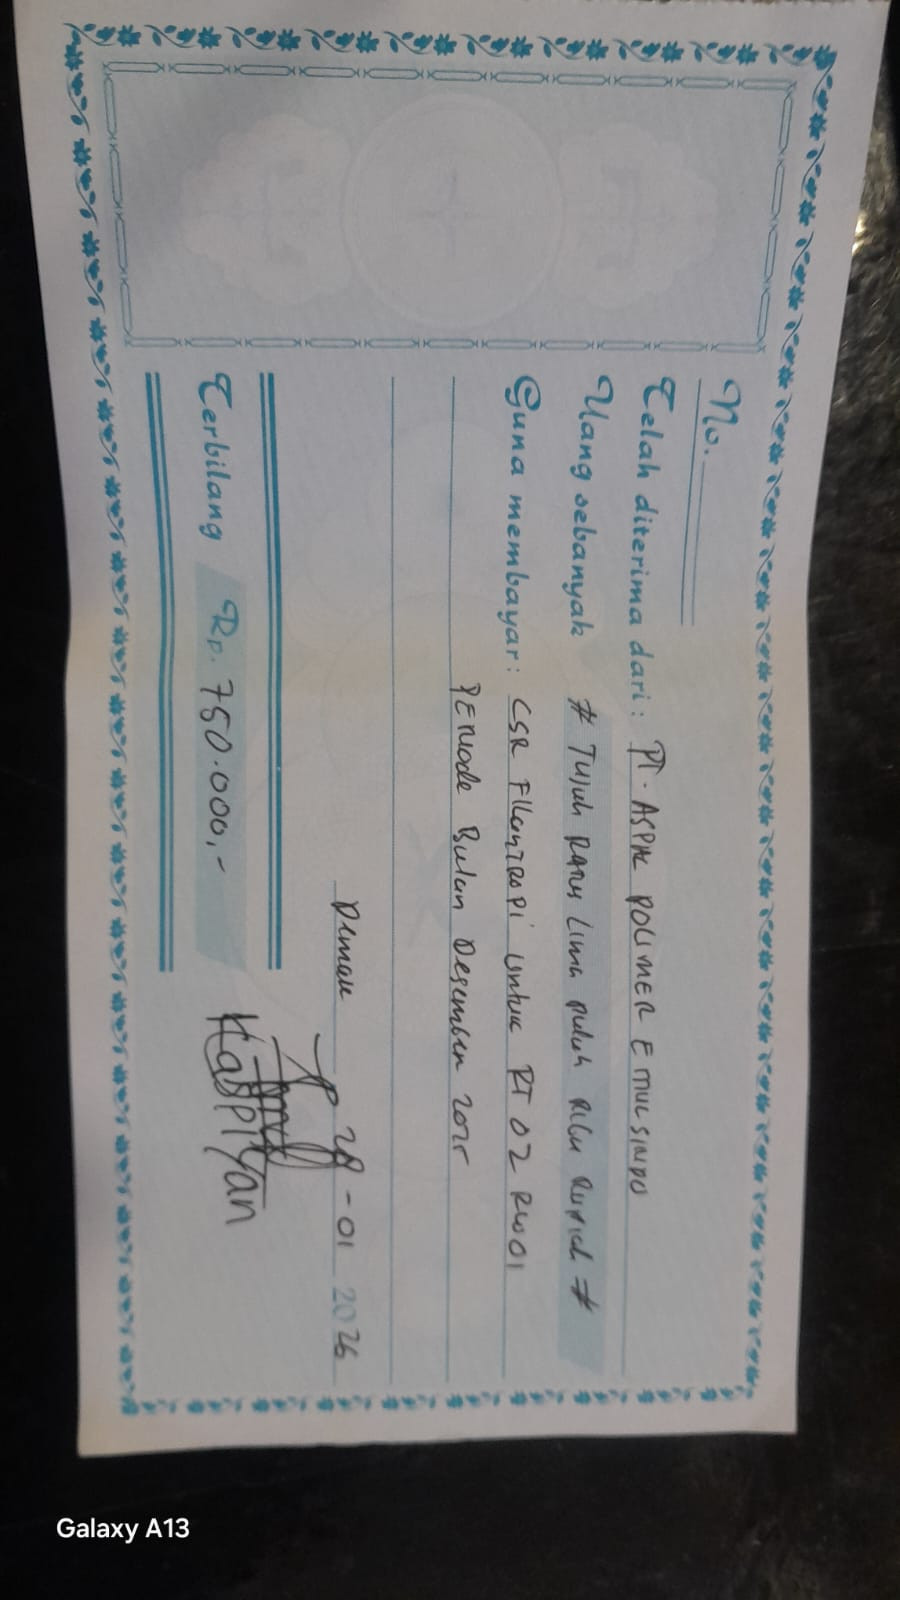 No.
Telah diterima dari : PT. ASPAL POLIMER EMULSINDO
Uang sebanyak # TUJUH RATUS LIMA PULUH RIBU RUPIAH #
Guna membayar : CSR FILANTROPI UNTUK RT 02 RW 01
PERIODE BULAN DESEMBER 2025
DEMAK 28 - 01 2026
Terbilang Rp. 750.000,-
Galaxy A13